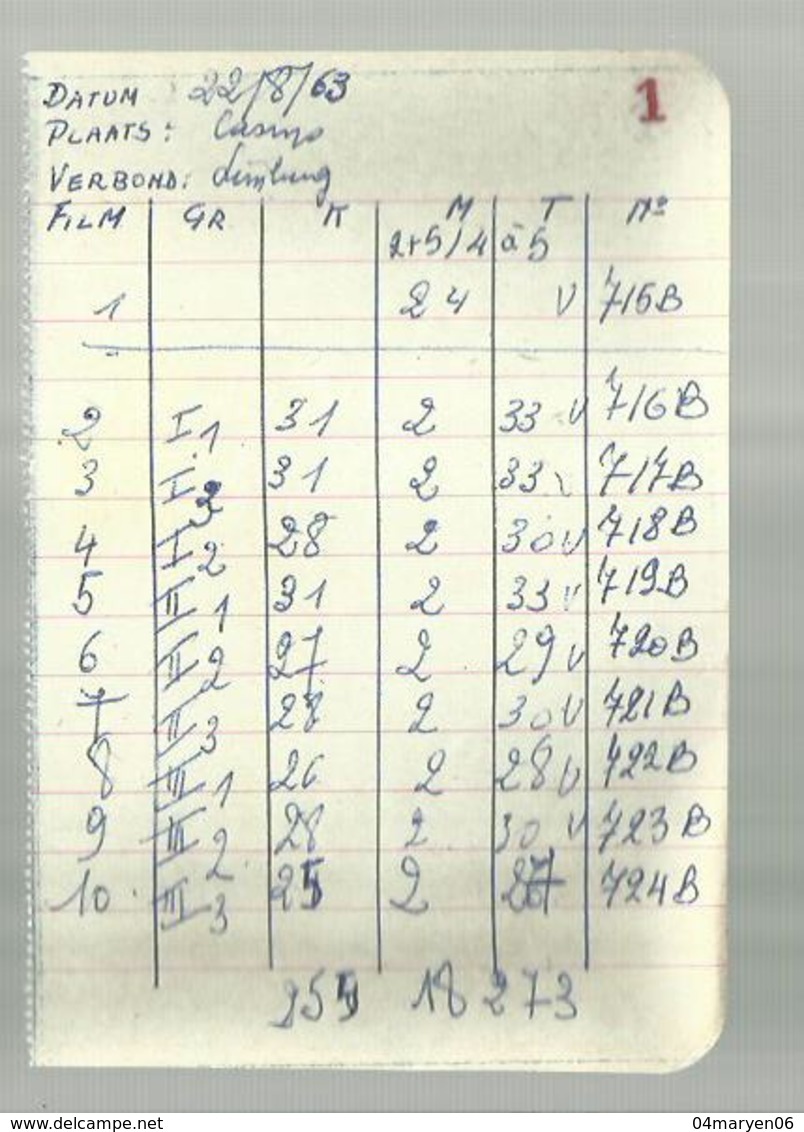 DATUM : 22/8/63
1
PLAATS: Casino
VERBOND: Limburg
FILM GR K M T Nº
2+5/4 à 5
1 24 V 716B
2 I1 31 2 33 V 716B
3 I3 31 2 33 V 717B
4 I2 28 2 30 V 718B
5 II1 31 2 33 V 719B
6 II2 27 2 29 V 720B
7 II3 28 2 30 V 721B
8 III1 26 2 28 V 722B
9 III2 28 2 30 V 723B
10 III3 25 2 27 724B
255 18 273
www.delcampe.net
04maryen06